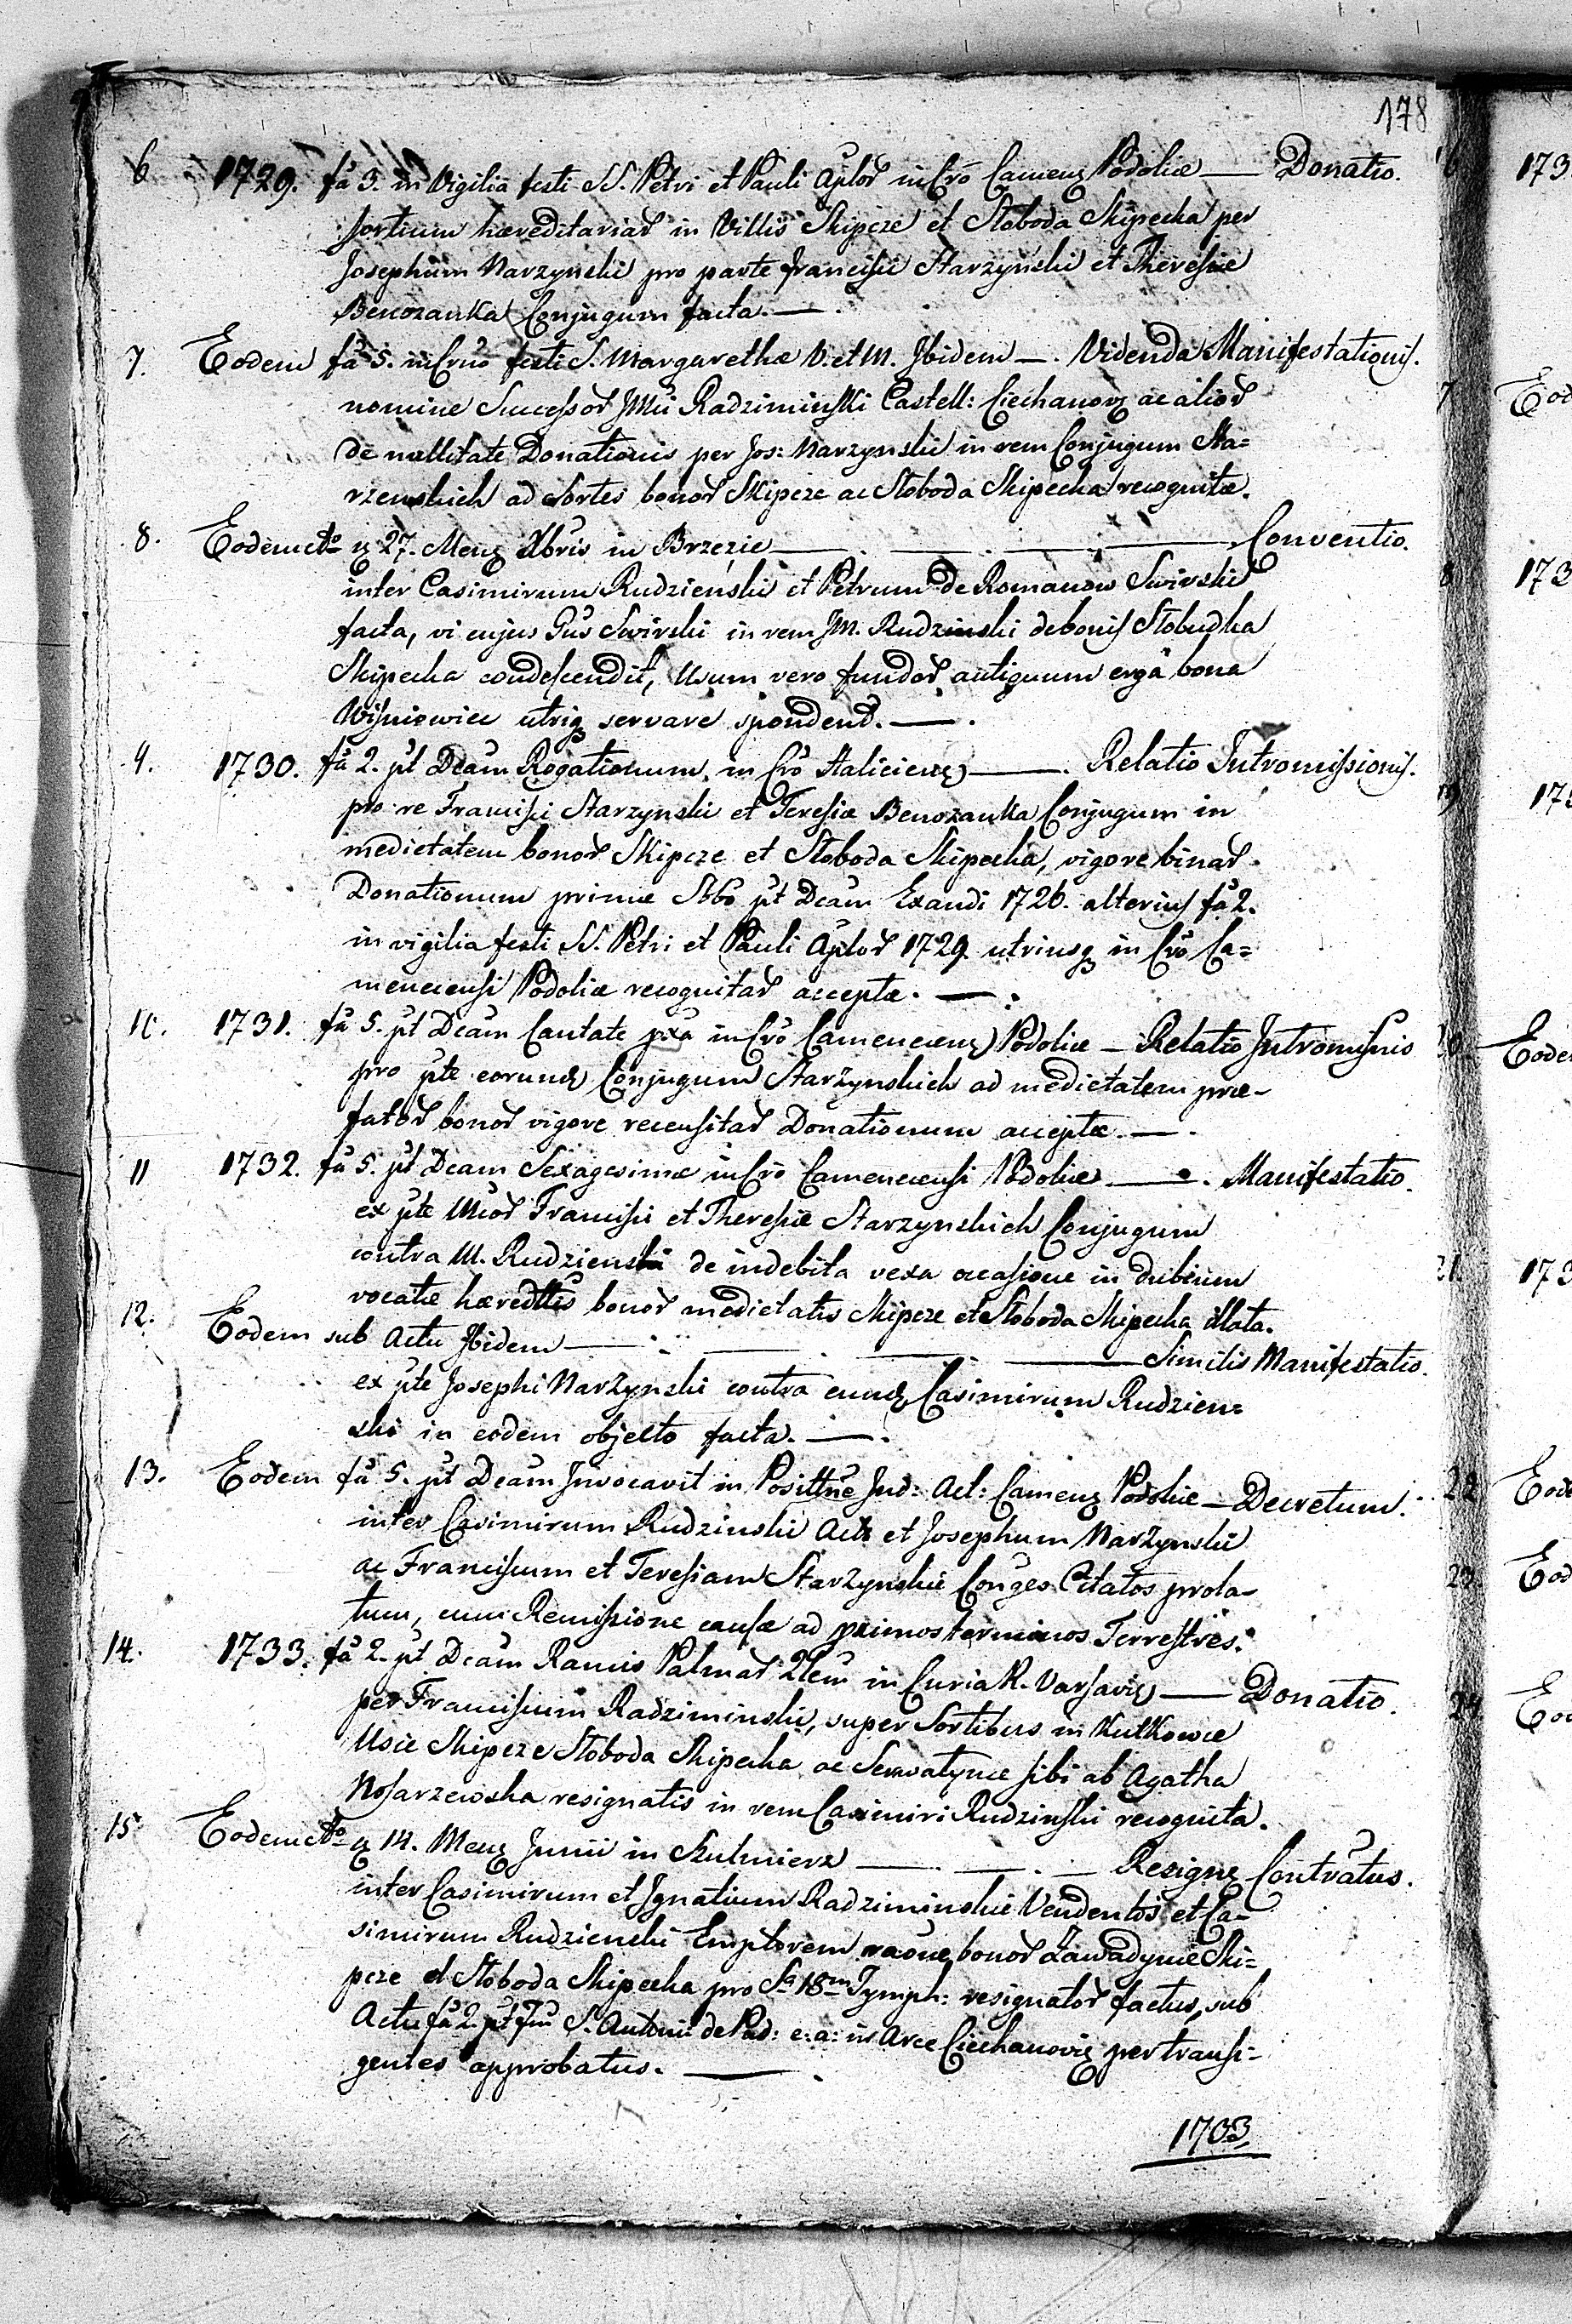 178
6 1729. fâ 3. in Vigilia festi SS. Petri et Pauli Aplor̃ in Cro̅ Camenȩ Podoliæ — Donatio.
sortium hæreditariar̃ in Villis Skipcze et Słoboda Skipecka per
Josephum Narzynski pro parte Francisci Starzynski et Theresiæ
Benozanka Conjugum facta. —
7. Eodem fâ 5. in Crno festi S. Margarethæ V. et M. Ibidem —. Videnda Manifestationis.
nomine Successor̃ JMci Radziminski Castell: Ciechanovȩ ac alior̃
de nullitate Donationis per Jos: Narzynski in rem Conjugum Sta=
rzenskich ad Sortes bonor̃ Skipcze ac Słoboda Skipecka recognitæ.
8. Eodem cto ȩ 27. Menȩ Xbris in Brzezie — . — . — Conventio.
inter Casimirum Rudzieński et Petrum de Romanow Swirski
facta, vi cujus Gus Swirski in rem JM. Rudzinski de bonis Słobudka
Skipecka condescendit, Usum vero fundor̃ antiquum erga bona
Wiszniowiec utriqȝ servare spondend. —.
9. 1730. fâ 2. pt Dcam Rogationum. in Cro̅ Haliciens — Relatio Intromissionis.
pro re Francisci Starzynski et Teresiæ Benozanka Conjugum in
medietatem bonor̃ Skipcze et Słoboda Skipecka, vigore binar̃
Donationum primæ Sbbo pt Dcam Exaudi 1726. alterius fâ 2.
in vigilia festi SS. Petri et Pauli Aplor̃ 1729 utriusqȝ in Cro̅ Ca=
menecensi Podoliæ recognitar̃ acceptæ. —.
10. 1731. fâ 5. pt Dcam Cantate pxa in Cro̅ Camenecenȩ Podoliæ — Relatio Intromisnis
pro pte eorundȩ Conjugum Starzynskich ad medietatem præ-
fator̃ bonor̃ vigore recensitar̃ Donationum acceptæ. —.
11 1732. fâ 5. pt Dcam Sexagesimæ in Cro̅ Camenecensi Podoliæ —. Manifestatio.
ex pte Mcor̃ Francisci et Theresiæ Starzynskich Conjugum
contra M. Rudzienski de indebita vexa occasione in dubium
vocatæ hæredttis bonor̃ medietatis Skipcze et Słoboda Skipecka illata.
12. Eodem sub Actu Ibidem — . — . — . — Similis Manifestatio.
ex pte Josephi Narzynski contra eundȩ Casimirum Rudzien=
ski in eodem objecto facta. —.
13. Eodem fâ 5. pt Dcam Invocavit in Posittne Jud: Act: Camenȩ Podoliæ — Decretum.
inter Casimirum Rudzinski Actr̃ et Josephum Narzynski
ac Franciscum et Teresiam Starzynskie Conges. Citatos prola-
tum, cum Remissione causæ ad primos terminos Terrestres.
14. 1733. fâ 2. pt Dcam Ramis Palmar̃ 2lem in Curia R. Varsaviȩ — Donatio.
per Franciscum Radziminski, super Sortibus in Kutkowce
Uscie Skipcze Słoboda Skipecka ac Serwatynce sibi ab Agatha
Nosarzewska resignatis in rem Casimiri Rudzinski recognita.
15 Eodem cto ȩ 14. Menȩ Junii in Szulmierz — . — . — Resignȩ Contratus.
inter Casimirum et Ignatium Radziminskie Vendentes et Ca-
simirum Rudzienski Emptorem raõne bonor̃ Zawadynce Ski=
pcze et Słoboda Skipecka pro Sa 18m Tymph: resignator̃ factus, sub
Actu fâ 2. pt Fm S. Antonii de Pad: e: a: in Arce Ciechanoviȩ per transi=
gentes approbatus. —.
1703
6 173
7 Eod
8 173
9 173
10 Eoder
21. 173
22 Eode
23. Eod
24 Eod